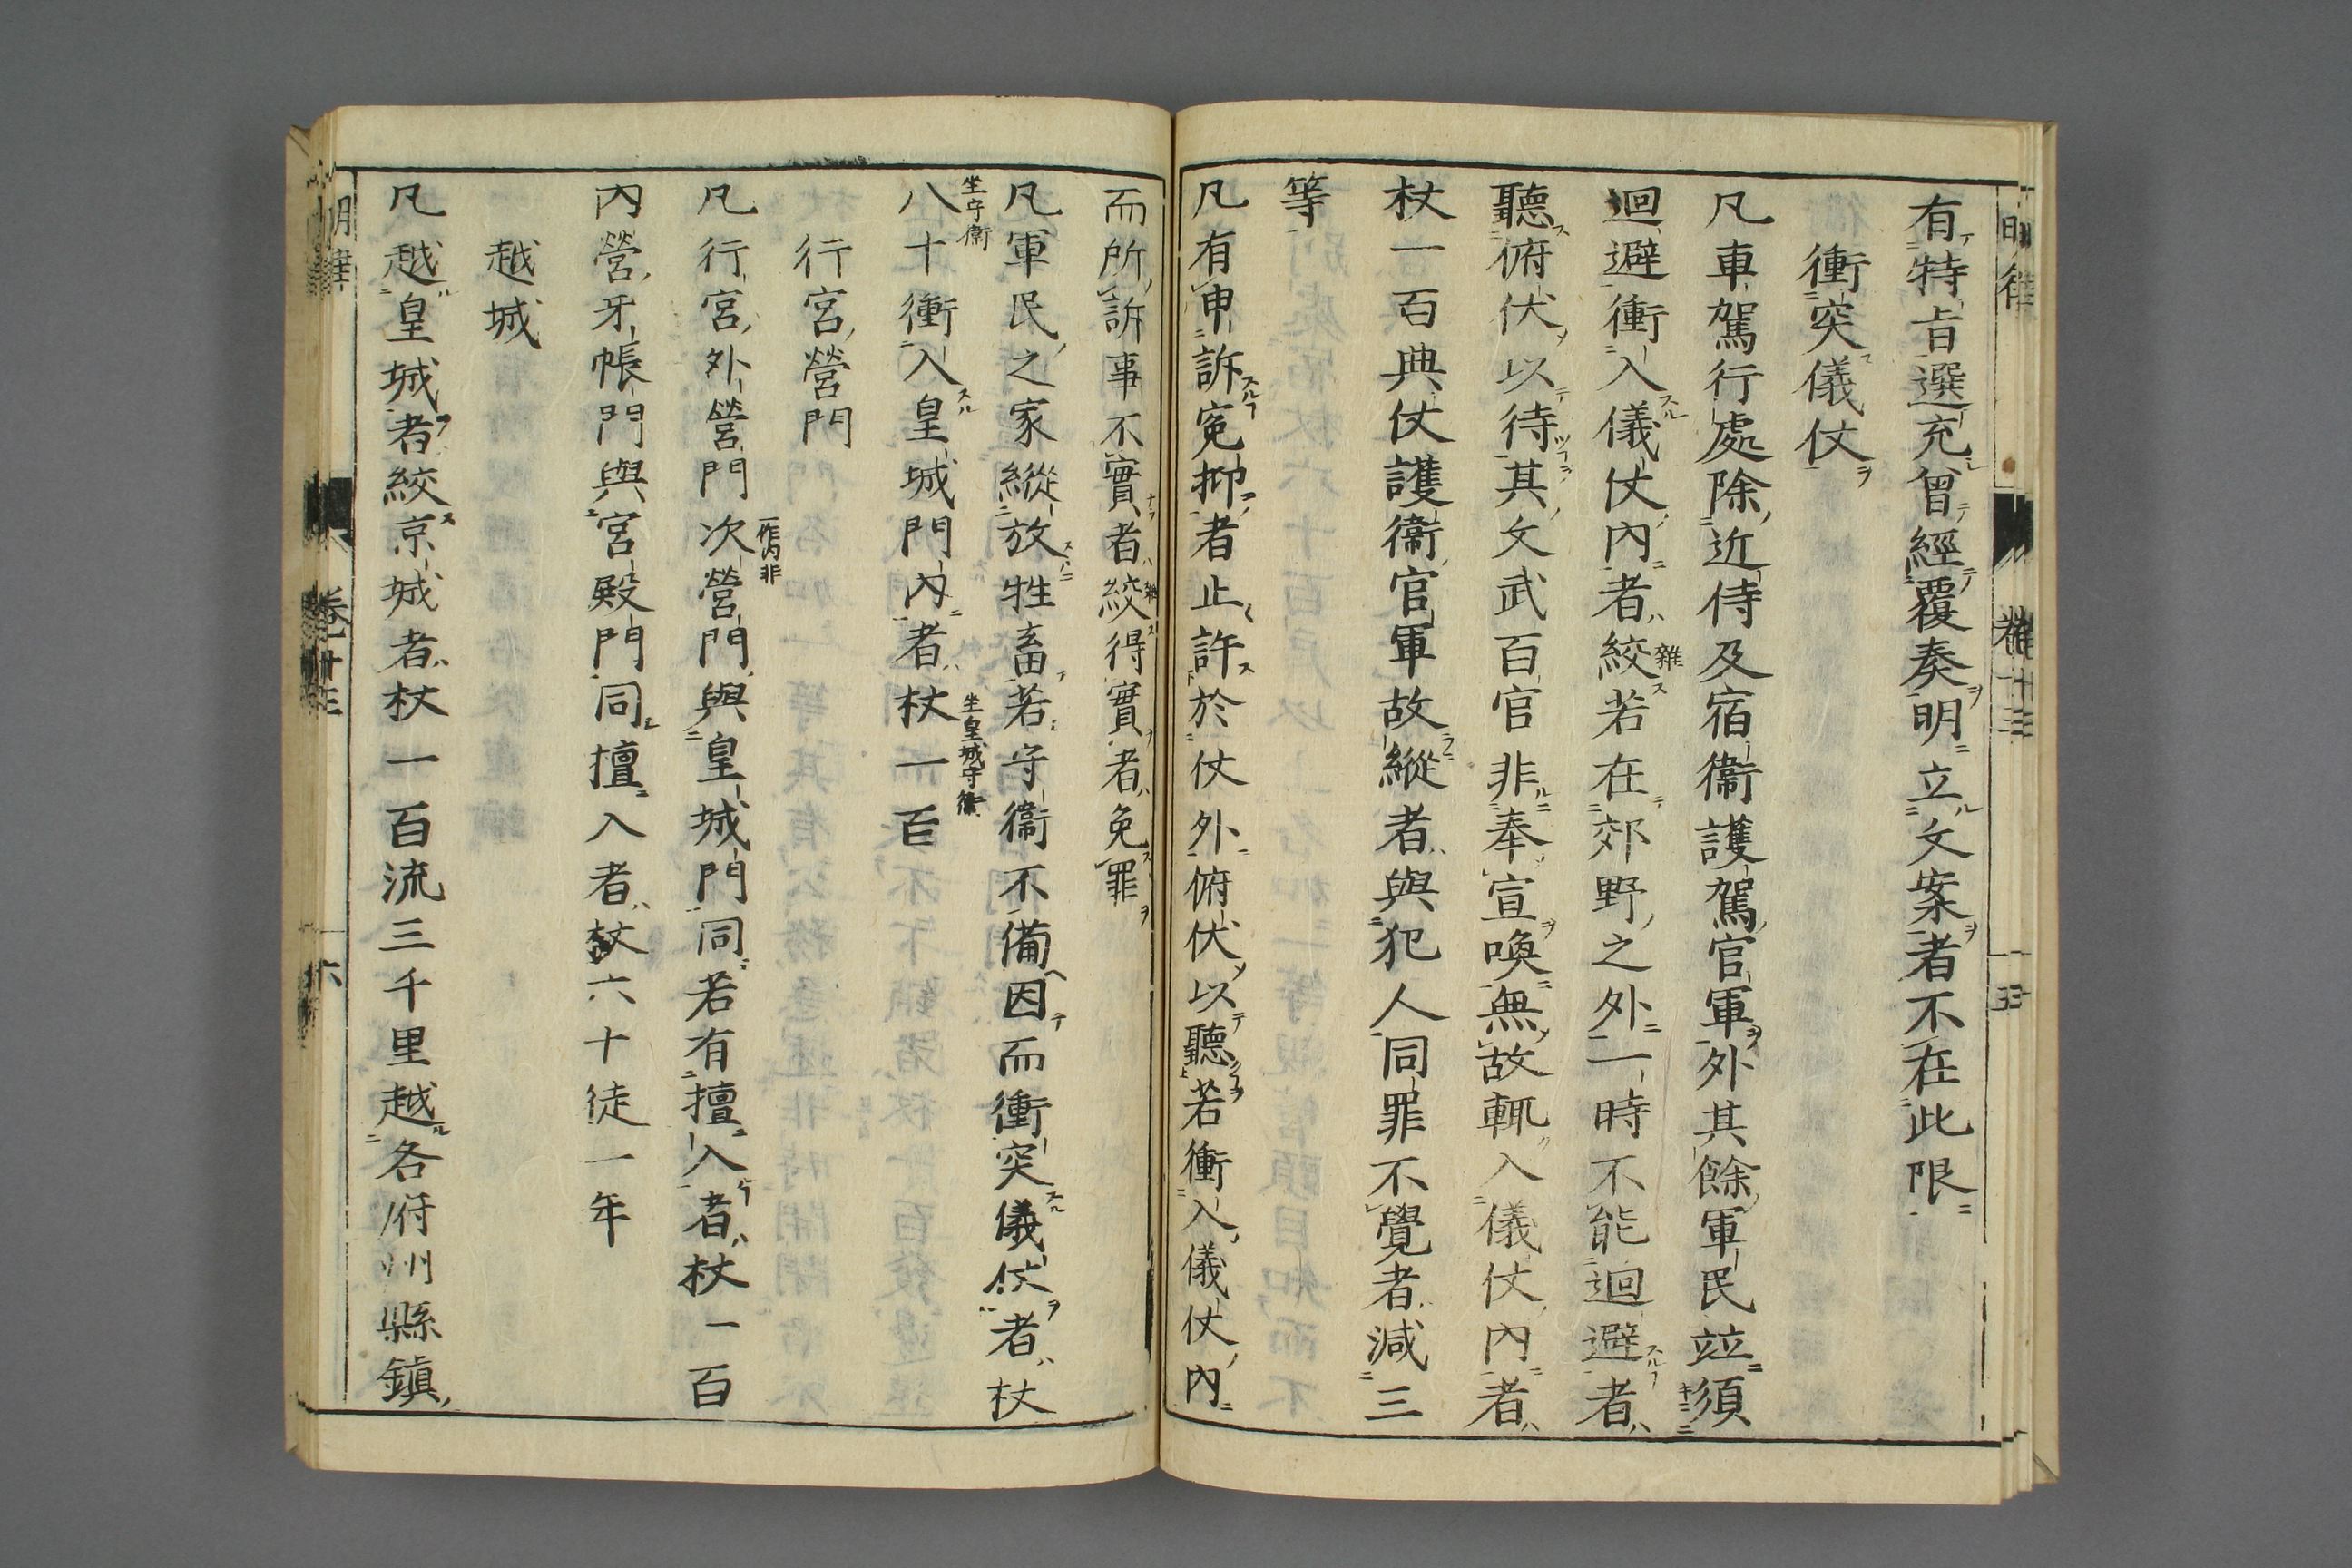 有特旨選充曾經覆奏明立文案者不在此限
衝突儀仗
凡車駕行處除近侍及宿衞護駕官軍外其餘軍民竝須
迴避衝入儀仗內者絞若在郊野之外一時不能迴避者
雜
聽俯伏以待其文武百官非奉宣喚無故輒入儀仗內者
杖一百典仗護衞官軍故縱者與犯人同罪不覺者減三
等
凡有申訴冤抑者止許於仗外俯伏以聽若衝入儀仗內
而所訴事不實者絞得實者免罪
雜
凡軍民之家縱放牲畜若守衞不備因而衝突儀仗者杖
八十衝入皇城門內者杖一百
坐守衞
坐皇城守衞
行宮營門
凡行宮外營門次營門與皇城門同若有擅入者杖一百
一作內非
內營牙帳門與宮殿門同擅入者杖六十徒一年
越城
凡越皇城者絞京城者杖一百流三千里越各府州縣鎮
明律
卷十三
六